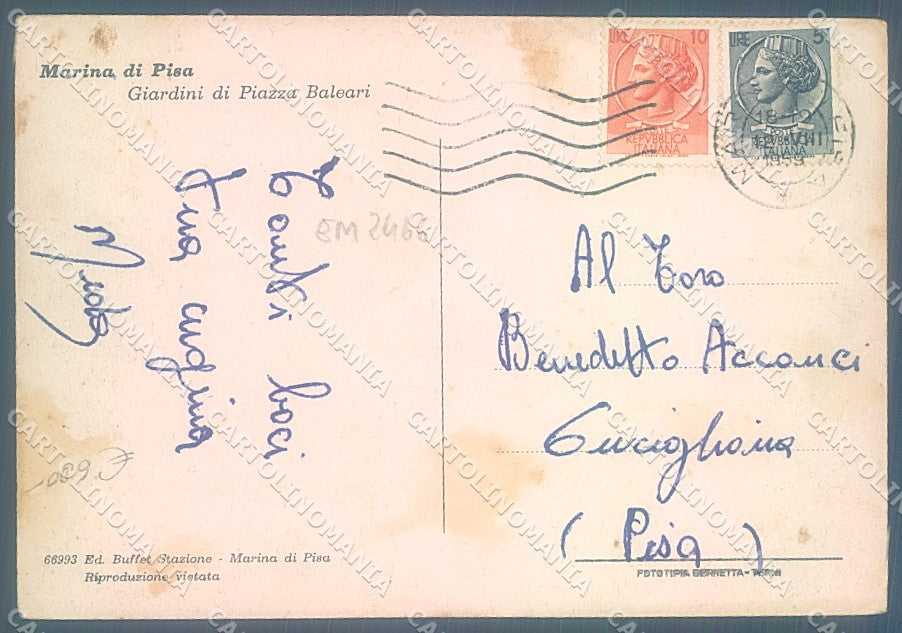 Marina di Pisa
Giardini di Piazza Baleari
LIRE 10
POSTE
REPVBBLICA
ITALIANA
LIRE 5
POSTE
REPVBBLICA
ITALIANA
18-19
1959
Tanti baci
tua cugina
EM 2466
Al Toro
Benedetto Acconci
Cucigliana
(Pisa)
€ 6,00-
66993 Ed. Buffet Stazione - Marina di Pisa
Riproduzione vietata
FOTOTIPIA BERRETTA - TERNI
CARTOLINOMANIA